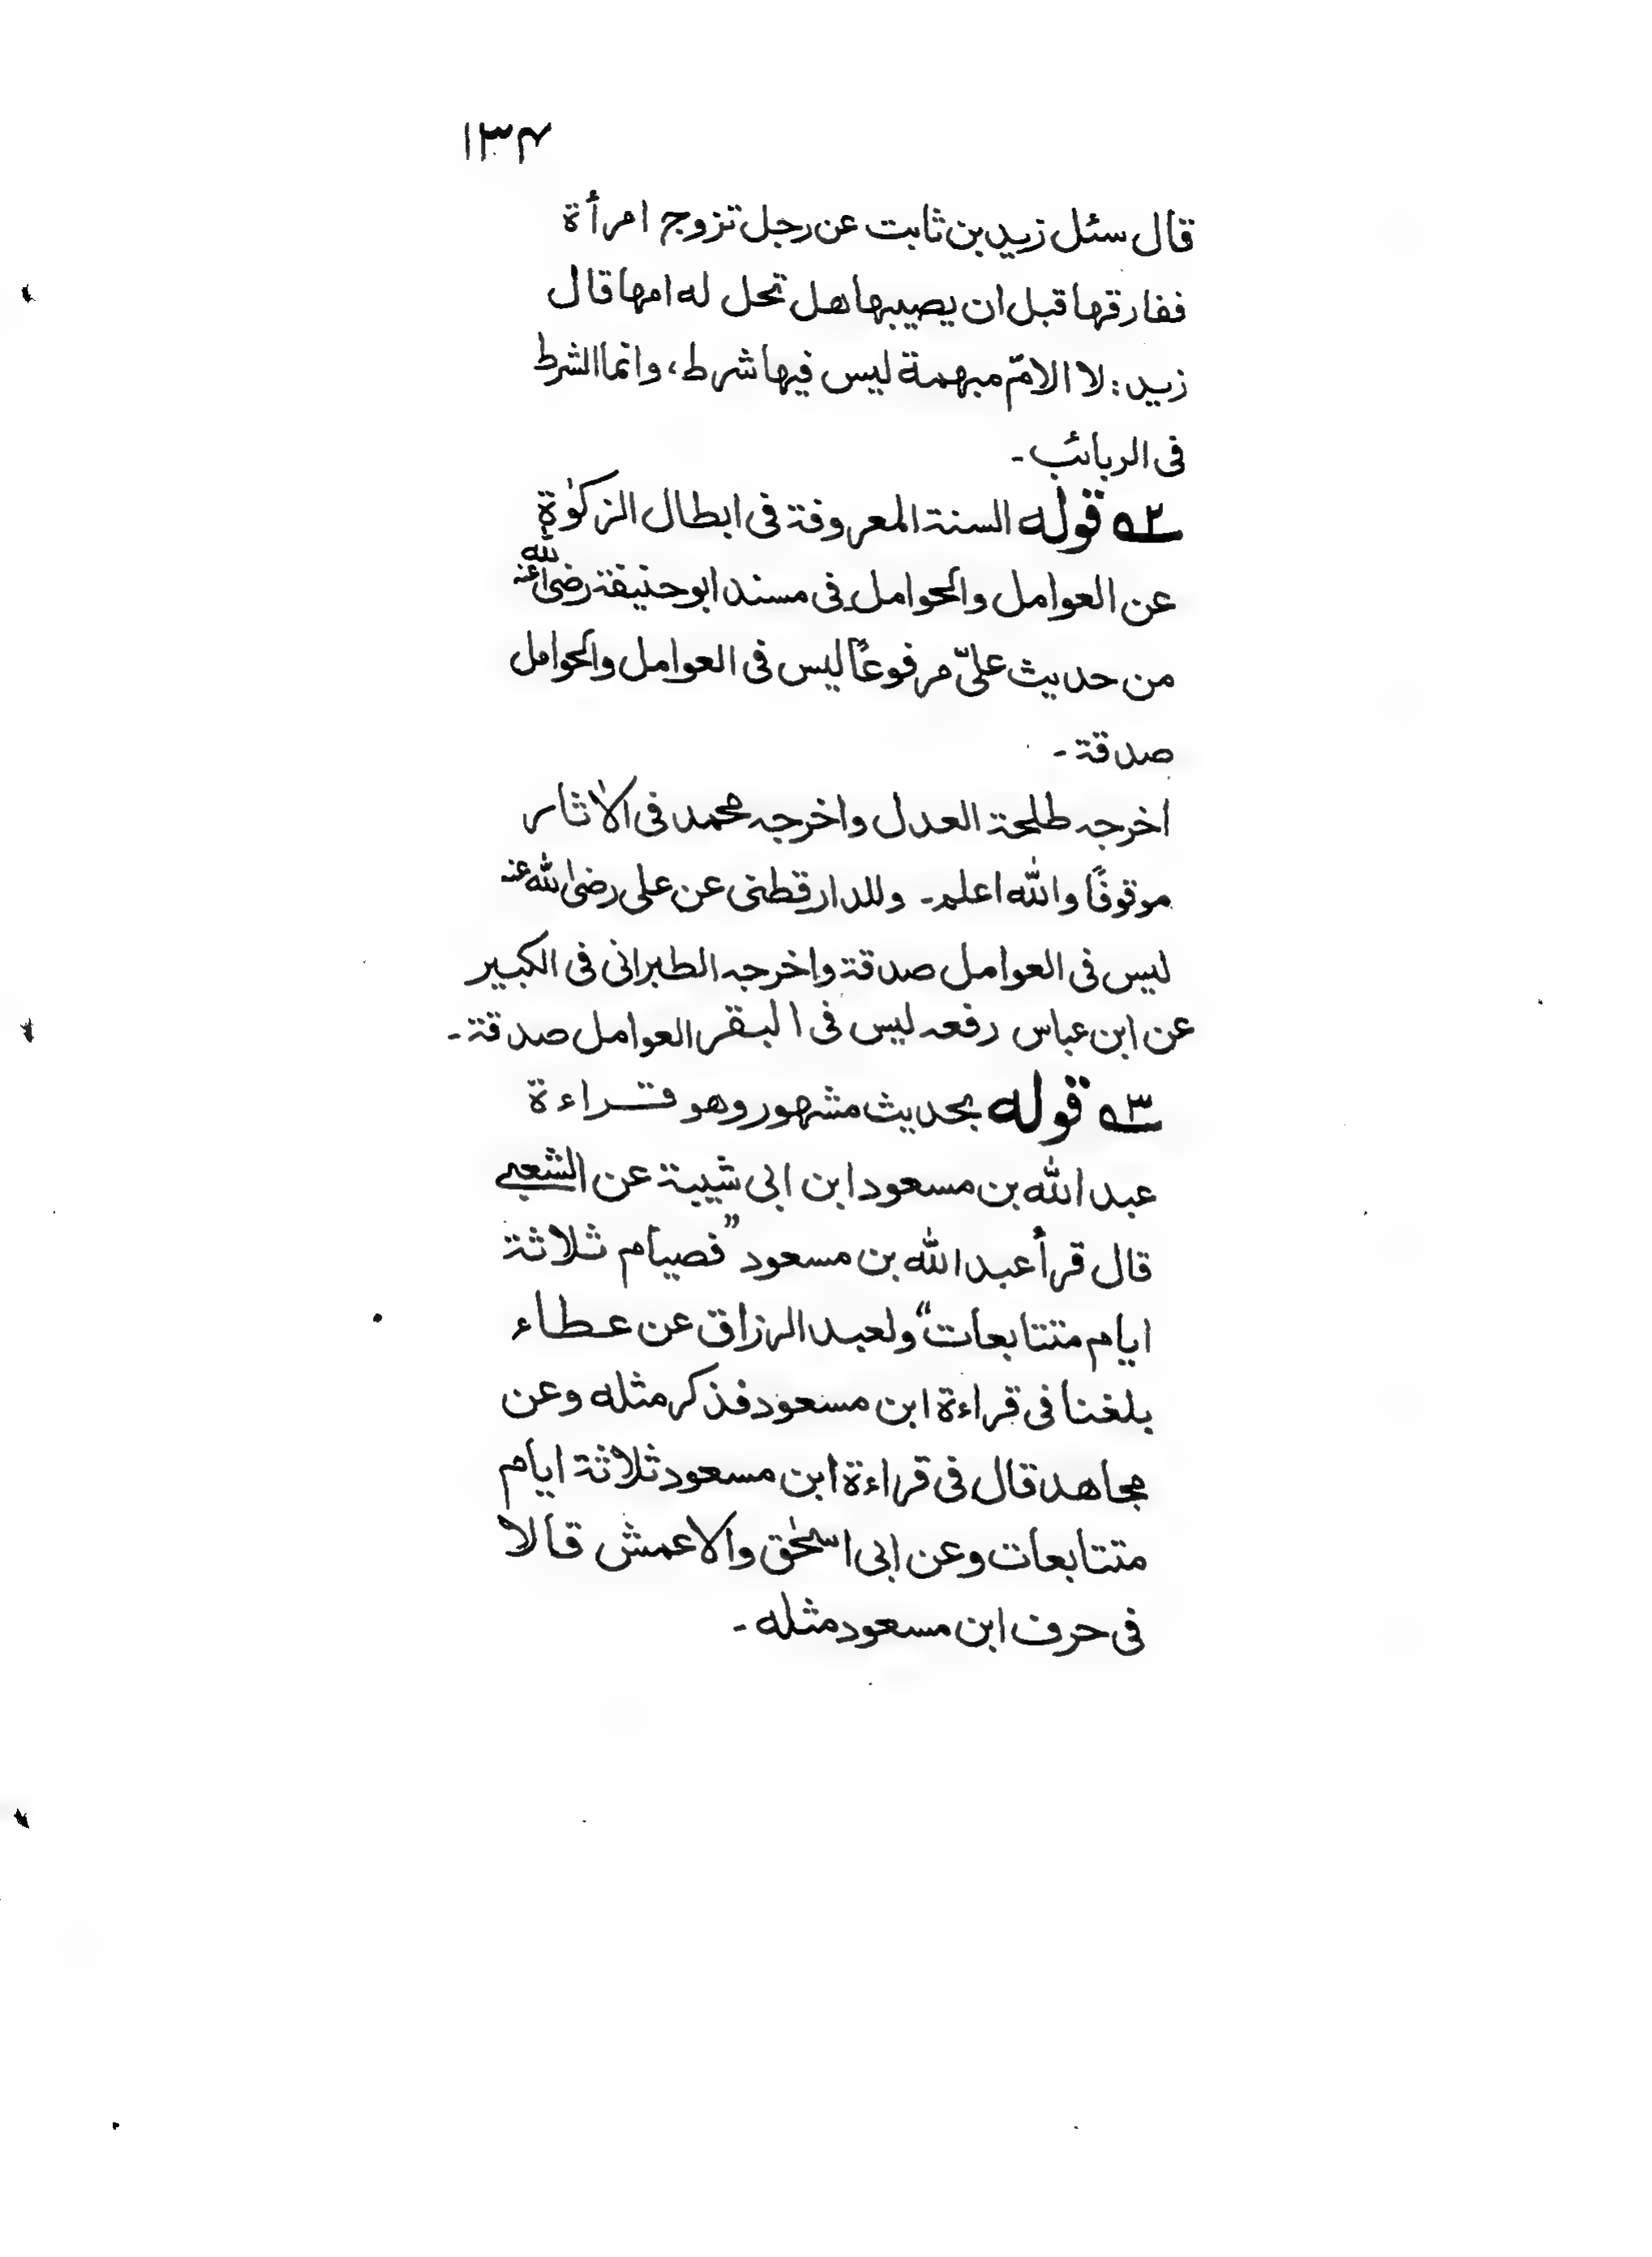 ۱۳۴
قال سئل زيد بن ثابت عن رجل تزوج امرأة
ففارقها قبل ان يصيبها هل تحل له امها قال
زيد : لا الامّ مبهمة ليس فيها شرط، وانما الشرط
فى الربائب ـ
۵۲ قوله السنة المعروفة فى ابطال الزكوٰة
عن العوامل والحوامل فى مسند ابو حنيفة رضى الله عنه
من حديث علىّ مرفوعًا ليس فى العوامل والحوامل
صدقة ـ
اخرجه طلحة العدل واخرجه محمد فى الاٰثار
موقوفًا والله اعلم ـ وللدارقطنى عن على رضى الله عنه
ليس فى العوامل صدقة واخرجه الطبرانى فى الكبير
عن ابن عباس رفعه ليس فى البقر العوامل صدقة ـ
۵۳ قوله بحديث مشهور وهو قراءة
عبد الله بن مسعود ابن ابى شيبة عن الشعبے
قال قرأ عبد الله بن مسعود ”فصيام ثلاثة
ايام متتابعات“ ولعبد الرزاق عن عطاء
بلغنا فى قراءة ابن مسعود فذكر مثله وعن
مجاهد قال فى قراءة ابن مسعود ثلاثة ايام
متتابعات وعن ابى اسحٰق والاعمش قالا
فى حرف ابن مسعود مثله ـ